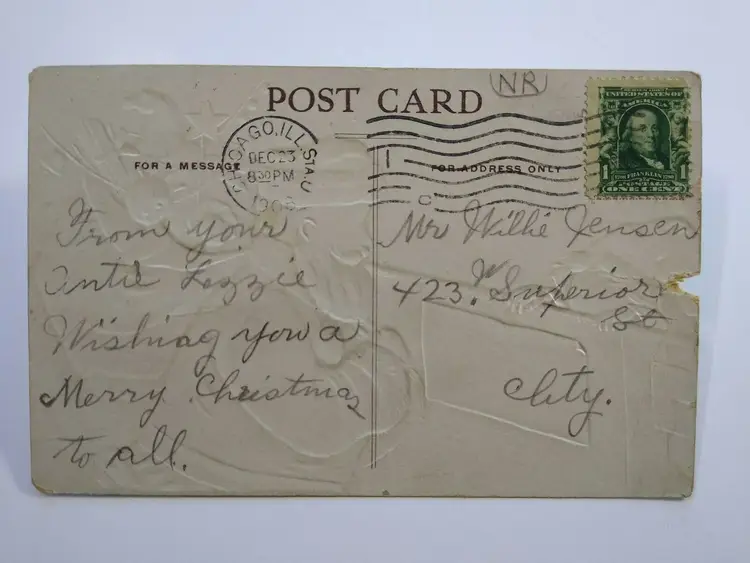 NR
POST CARD
CHICAGO, ILL. STA. U
DEC 23
8 30 PM
1908
1
C
FOR A MESSAGE
FOR ADDRESS ONLY
UNITED STATES OF
AMERICA
1 FRANKLIN 1
POSTAGE
ONE CENT
From your
Antie Lizzie
Wishing you a
Merry Christmas
to all.
Mr Willie Jensen
423. W Superior
St
City.